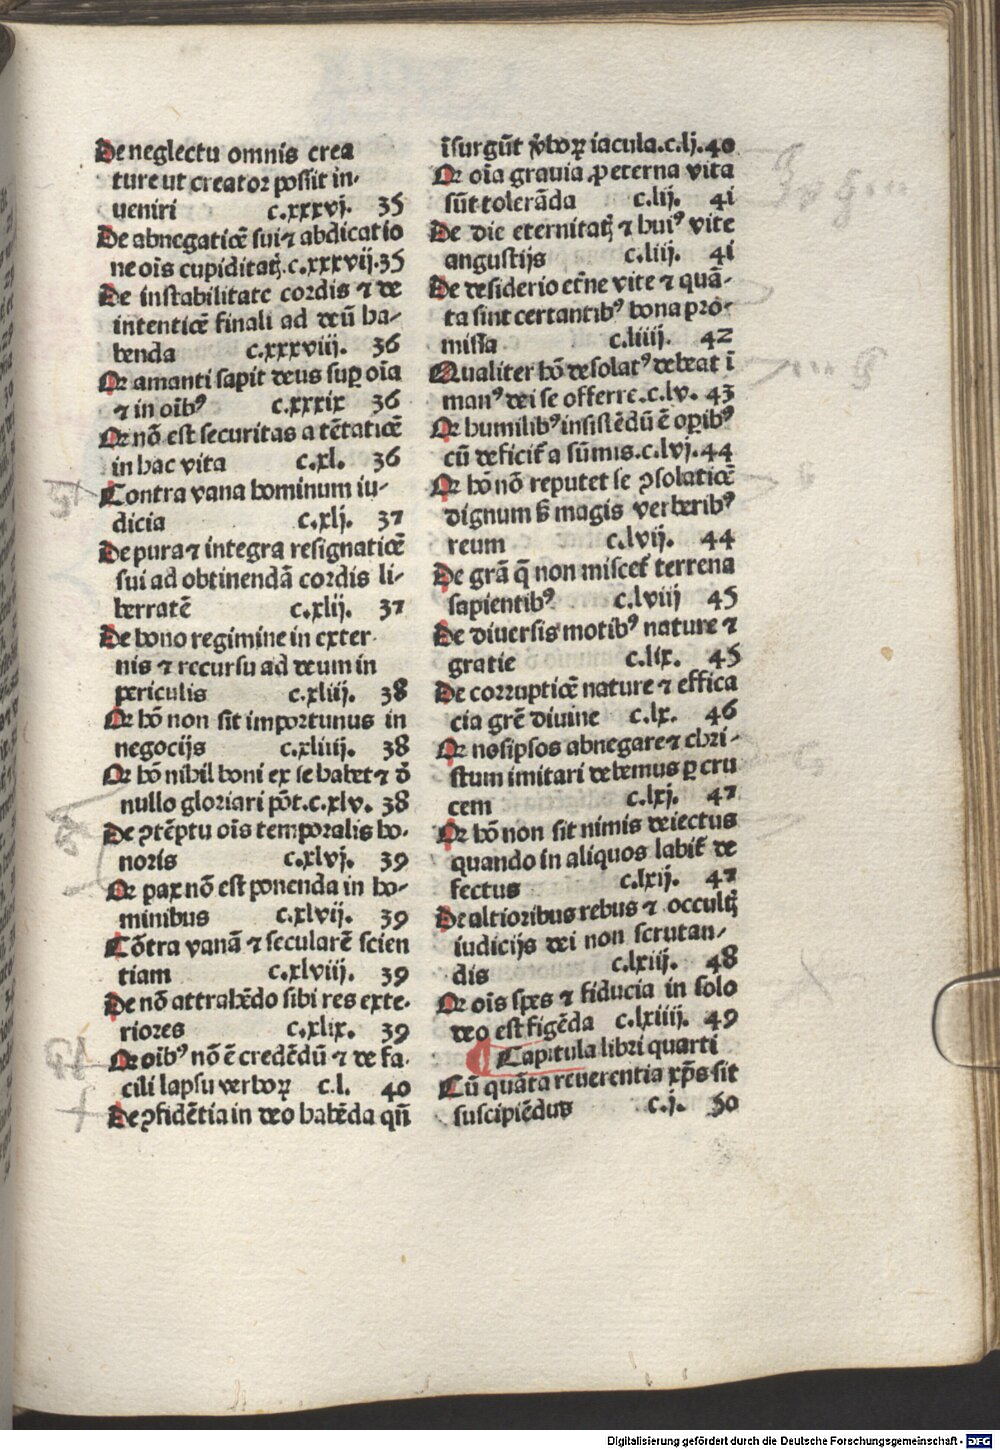 De neglectu omnis crea
ture ut creator possit in-
ueniri c.xxxvj. 35
De abnegatiōe sui ⁊ abdicatio
ne oīs cupiditatꝭ.c.xxxvij.35
De instabilitate cordis ⁊ de
intentiōe finali ad deū ha-
benda c.xxxviij. 36
Qꝛ amanti sapit deus suꝑ oīa
⁊ in oībꝰ c.xxxix 36
Qꝛ nō est securitas a tētatiōe
in hac vita c.xl. 36
Contra vana hominum iu-
dicia c.xlj. 37
De pura ⁊ integra resignatiōe
sui ad obtinendā cordis li-
berratē c.xlij. 37
De bono regimine in exter
nis ⁊ recursu ad deum in
periculis c.xliij. 38
Qꝛ hō non sit importunus in
negocijs c.xliiij. 38
Qꝛ hō nihil boni ex se habet ⁊ d̄
nullo gloriari pōt.c.xlv. 38
De ꝯtēptu oīs temporalis ho-
noris c.xlvj. 39
Qꝛ pax nō est ponenda in ho-
minibus c.xlvij. 39
Cōtra vanā ⁊ secularē scien
tiam c.xlviij. 39
De nō attrahēdo sibi res exte-
riores c.xlix. 39
Qꝛ oībꝰ nō ē credēdū ⁊ de fa-
cili lapsu verboꝝ c.l. 40
De ꝯfidētia in deo habēda qn̄
īsurgūt v̄boꝝ iacula.c.lj.40
Qꝛ oīa grauia ꝓ eterna vita
sūt tolerāda c.lij. 41
De die eternitatꝭ ⁊ huiꝰ vite
angustijs c.liij. 41
De desiderio etn̄e vite ⁊ quā-
ta sint certantibꝰ bona pro-
missa c.liiij. 42
Qualiter hō desolatꝰ debeat ī
manꝰ dei se offerre.c.lv. 43
Qꝛ humilibꝰ insistēdū ē oꝑibꝰ
cū deficit̄ a sūmis.c.lvj.44
Qꝛ hō nō reputet se ꝯsolatiōe
dignum s̄ magis verberibꝰ
reum c.lvij. 44
De grā q̄ non miscet̄ terrena
sapientibꝰ c.lviij 45
De diuersis motibꝰ nature ⁊
gratie c.lix. 45
De corruptiōe nature ⁊ effica
cia grē diuine c.lx. 46
Qꝛ nosipsos abnegare ⁊ chri-
stum imitari debemus ꝑ cru
cem c.lxj. 47
Qꝛ hō non sit nimis deiectus
quando in aliquos labit̄ de
fectus c.lxij. 47
De altioribus rebus ⁊ occultꝭ
iudicijs dei non scrutan-
dis c.lxiij. 48
Qꝛ oīs spes ⁊ fiducia in solo
deo est figēda c.lxiiij. 49
Capitula libri quarti
Cū quāta reuerentia xp̄s sit
suscipiēdus c.j. 50
Digitalisierung gefördert durch die Deutsche Forschungsgemeinschaft - DFG